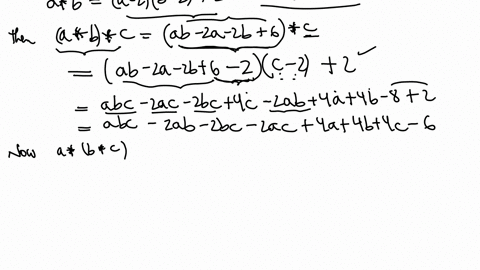 a*b = (a-2)(b-2)
then (a*b)*c = (ab-2a-2b+6)*c
= (ab-2a-2b+6-2)(c-2) + 2 ✓
= abc -2ac -2bc +4c -2ab +4a +4b -8 +2
= abc - 2ab - 2bc - 2ac + 4a + 4b + 4c - 6
Now a*(b*c)